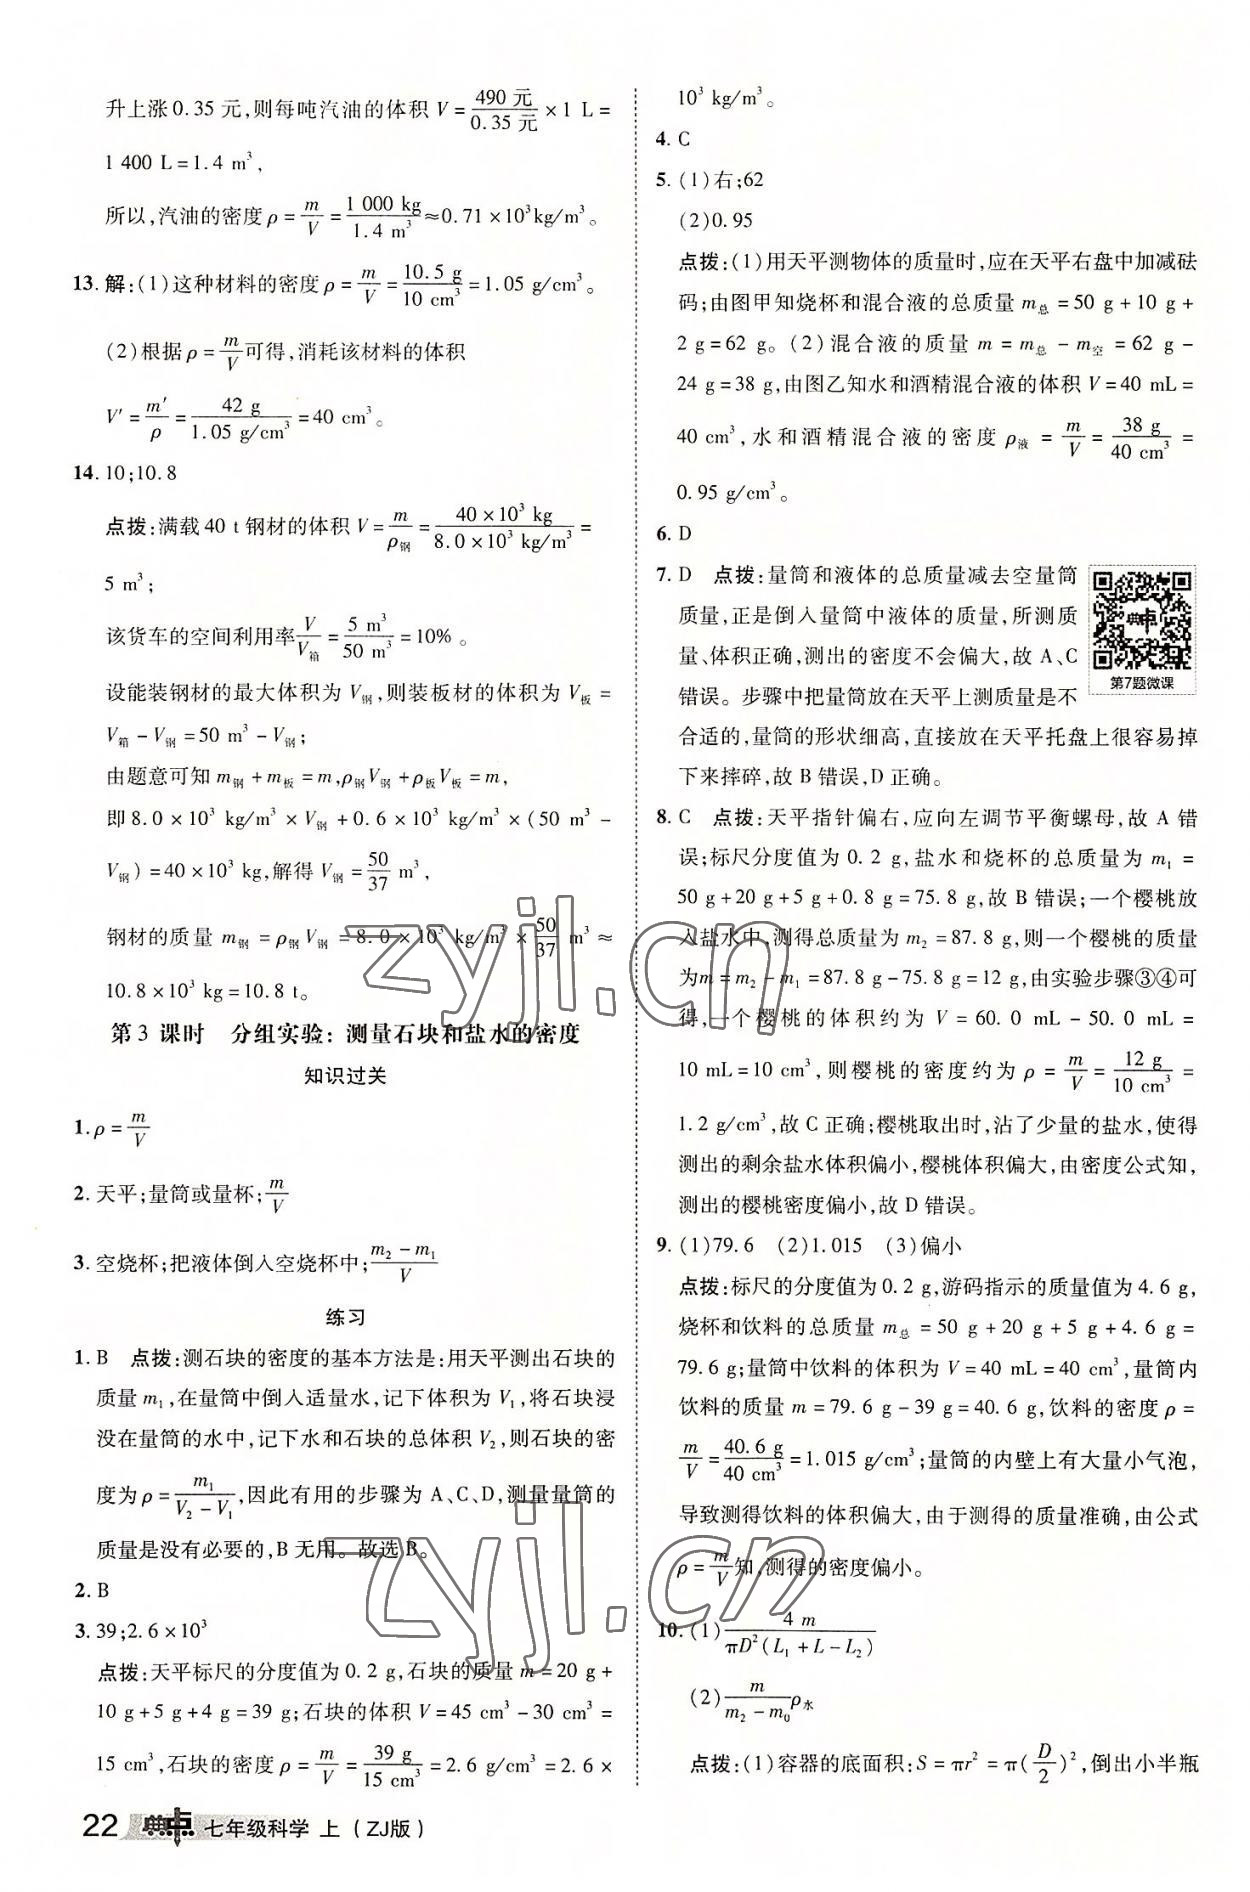 升上涨0.35 元,则每吨汽油的体积 V = 490 元/0.35 元 ×1 L =
1 400 L=1.4 m³,
所以,汽油的密度ρ = m/V = 1 000 kg/1.4 m³ ≈0.71×10³kg/m³。
13. 解:(1)这种材料的密度ρ = m/V = 10.5 g/10 cm³ =1.05 g/cm³。
(2)根据ρ = m/V 可得,消耗该材料的体积
V′ = m′/ρ = 42 g/1.05 g/cm³ =40 cm³。
14. 10;10.8
点拨:满载40 t钢材的体积 V = m/ρ钢 = 40×10³ kg/8.0×10³ kg/m³ =
5 m³;
该货车的空间利用率 V/V箱 = 5 m³/50 m³ =10%。
设能装钢材的最大体积为 V钢,则装板材的体积为 V板 =
V箱 - V钢 =50 m³ - V钢;
由题意可知 m钢 + m板 = m,ρ钢V钢 +ρ板V板 = m,
即8.0×10³ kg/m³ × V钢 +0.6×10³ kg/m³ ×(50 m³ -
V钢) =40×10³ kg,解得 V钢 = 50/37 m³,
钢材的质量 m钢 =ρ钢V钢 =8.0×10³ kg/m³ × 50/37 m³ ≈
10.8×10³ kg=10.8 t。
第 3 课时 分组实验: 测量石块和盐水的密度
知识过关
1. ρ = m/V
2. 天平;量筒或量杯; m/V
3. 空烧杯;把液体倒入空烧杯中; m₂ - m₁/V
练习
1. B 点拨:测石块的密度的基本方法是:用天平测出石块的
质量 m₁,在量筒中倒入适量水,记下体积为 V₁,将石块浸
没在量筒的水中,记下水和石块的总体积 V₂,则石块的密
度为ρ = m₁/V₂ - V₁,因此有用的步骤为 A、C、D,测量量筒的
质量是没有必要的,B 无用。故选 B。
2. B
3. 39;2.6×10³
点拨:天平标尺的分度值为 0.2 g,石块的质量 m =20 g+
10 g+5 g+4 g=39 g;石块的体积 V=45 cm³ -30 cm³ =
15 cm³,石块的密度ρ = m/V = 39 g/15 cm³ =2.6 g/cm³ =2.6×
10³ kg/m³。
4. C
5. (1)右;62
(2)0.95
点拨:(1)用天平测物体的质量时,应在天平右盘中加减砝
码;由图甲知烧杯和混合液的总质量 m总 = 50 g+10 g+
2 g=62 g。(2)混合液的质量 m = m总 - m空 = 62 g -
24 g=38 g,由图乙知水和酒精混合液的体积 V=40 mL=
40 cm³,水和酒精混合液的密度ρ液 = m/V = 38 g/40 cm³ =
0.95 g/cm³。
6. D
7. D 点拨:量筒和液体的总质量减去空量筒
质量,正是倒入量筒中液体的质量,所测质
量、体积正确,测出的密度不会偏大,故 A、C
错误。步骤中把量筒放在天平上测质量是不
合适的,量筒的形状细高,直接放在天平托盘上很容易掉
下来摔碎,故 B 错误,D 正确。
第7题微课
8. C 点拨:天平指针偏右,应向左调节平衡螺母,故 A 错
误;标尺分度值为 0.2 g,盐水和烧杯的总质量为 m₁ =
50 g+20 g+5 g+0.8 g=75.8 g,故 B 错误;一个樱桃放
入盐水中,测得总质量为 m₂ =87.8 g,则一个樱桃的质量
为m = m₂ - m₁ =87.8 g-75.8 g=12 g,由实验步骤③④可
得,一个樱桃的体积约为 V=60.0 mL-50.0 mL=
10 mL=10 cm³,则樱桃的密度约为ρ = m/V = 12 g/10 cm³ =
1.2 g/cm³,故 C 正确;樱桃取出时,沾了少量的盐水,使得
测出的剩余盐水体积偏小,樱桃体积偏大,由密度公式知,
测出的樱桃密度偏小,故 D 错误。
9. (1)79.6 (2)1.015 (3)偏小
点拨:标尺的分度值为 0.2 g,游码指示的质量值为 4.6 g,
烧杯和饮料的总质量 m总 =50 g+20 g+5 g+4.6 g=
79.6 g;量筒中饮料的体积为 V=40 mL=40 cm³,量筒内
饮料的质量 m=79.6 g-39 g=40.6 g,饮料的密度ρ =
m/V = 40.6 g/40 cm³ =1.015 g/cm³;量筒的内壁上有大量小气泡,
导致测得饮料的体积偏大,由于测得的质量准确,由公式
ρ = m/V 知,测得的密度偏小。
10. (1) 4 m/πD²(L₁ +L-L₂)
(2) m/m₂ - m₀ ρ水
点拨:(1)容器的底面积:S = πr² = π(D/2)²,倒出小半瓶
22 典中点 七年级科学 上(ZJ版)
zyjl.cn
zyjl.cn